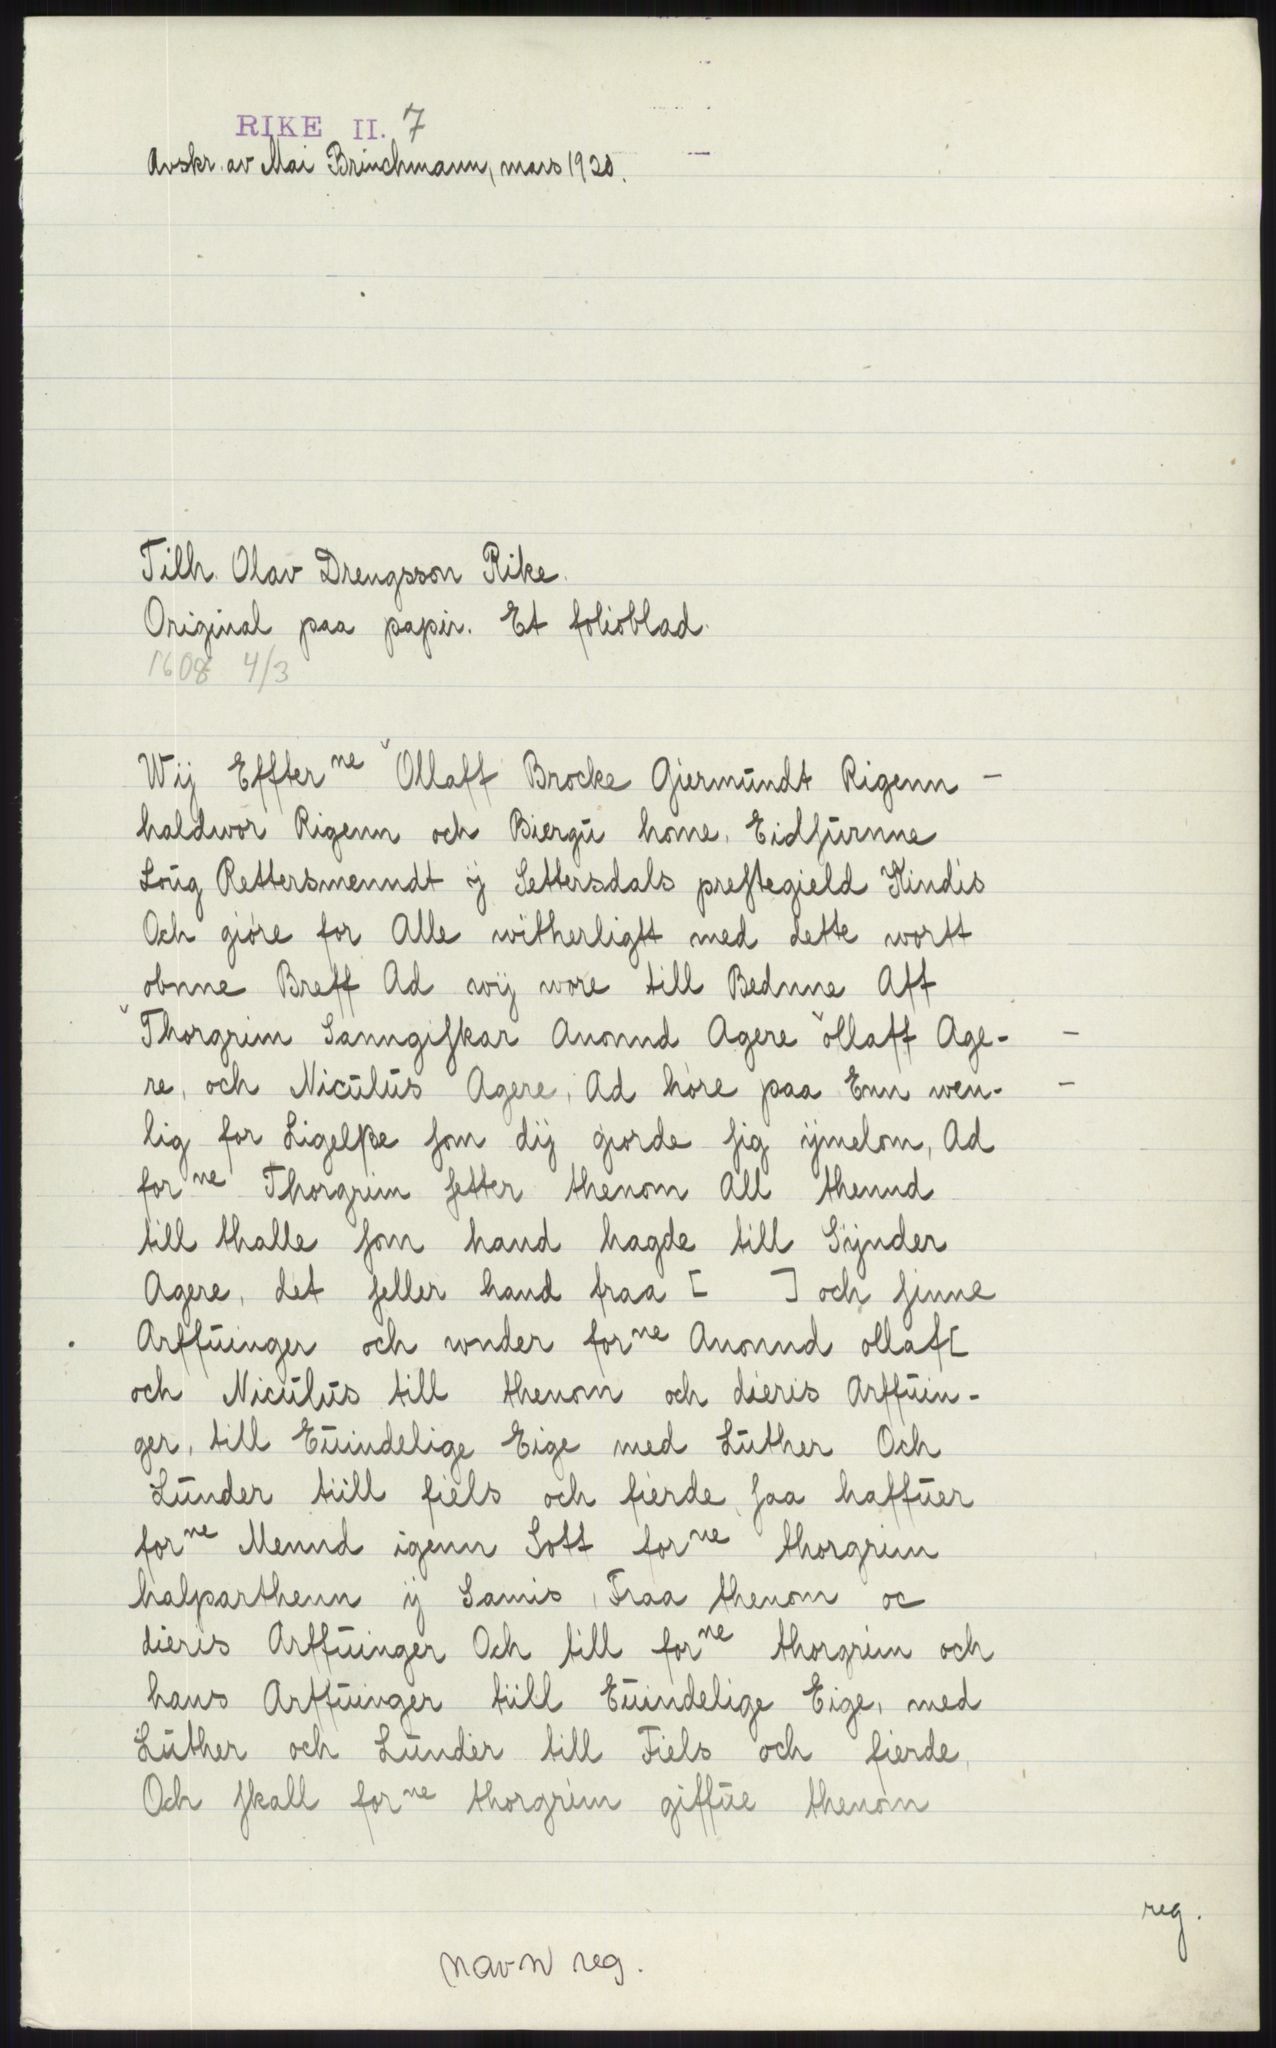 RIKE II. 7
Avskr. av Mai Brinchmann, mars 1920.
Tilh. Olav Drengsson Rike.
Original paa papir. Et folioblad.
1608 4/3
Wij Effter ne Ollaff Brocke Giermŭndt Rigenn –
haldwor Rigenn och Biergŭ home. Eidſŭrnne
Loŭg Rettersmenndt ÿ Settersdals preſtegield Kindis
Och giøre for Alle witherligtt med dette wortt
obnne Breff Ad wij wore till Bednne Aff
Thorgrim Sanngiſkar Anonnd Agere ollaff Age- –
re, och Nicŭlŭs Agere, Ad høre paa Enn wen- –
lig for Ligelße ſom dij giorde ſig ÿmelom, Ad
for ne Thorgrim ſetter thenom All thennd
till thalle ſom hand hagde till Sÿnder
Agere, det ſeller hand fraa [ ] och ſinne
Arffŭinger och wnder for ne Anonnd ollaf[
och Nicŭlŭs till thenom och dieris Arffŭin-
ger, till Eŭindelige Eige med Lŭther Och
Lŭnder tiill fiels och fierde ſaa haffŭer
for ne Mennd igenn Sott for ne thorgrim
halparthenn ÿ Samis, Fraa thenom oc
dieris Arffŭinger Och till for ne thorgrim och
hans Arffŭinger tiill Eŭindelige Eige, med
Lŭther och Lŭnder till Fiels och fierde,
Och ſkall for ne thorgrim giffŭe thenom
reg.
navn reg.